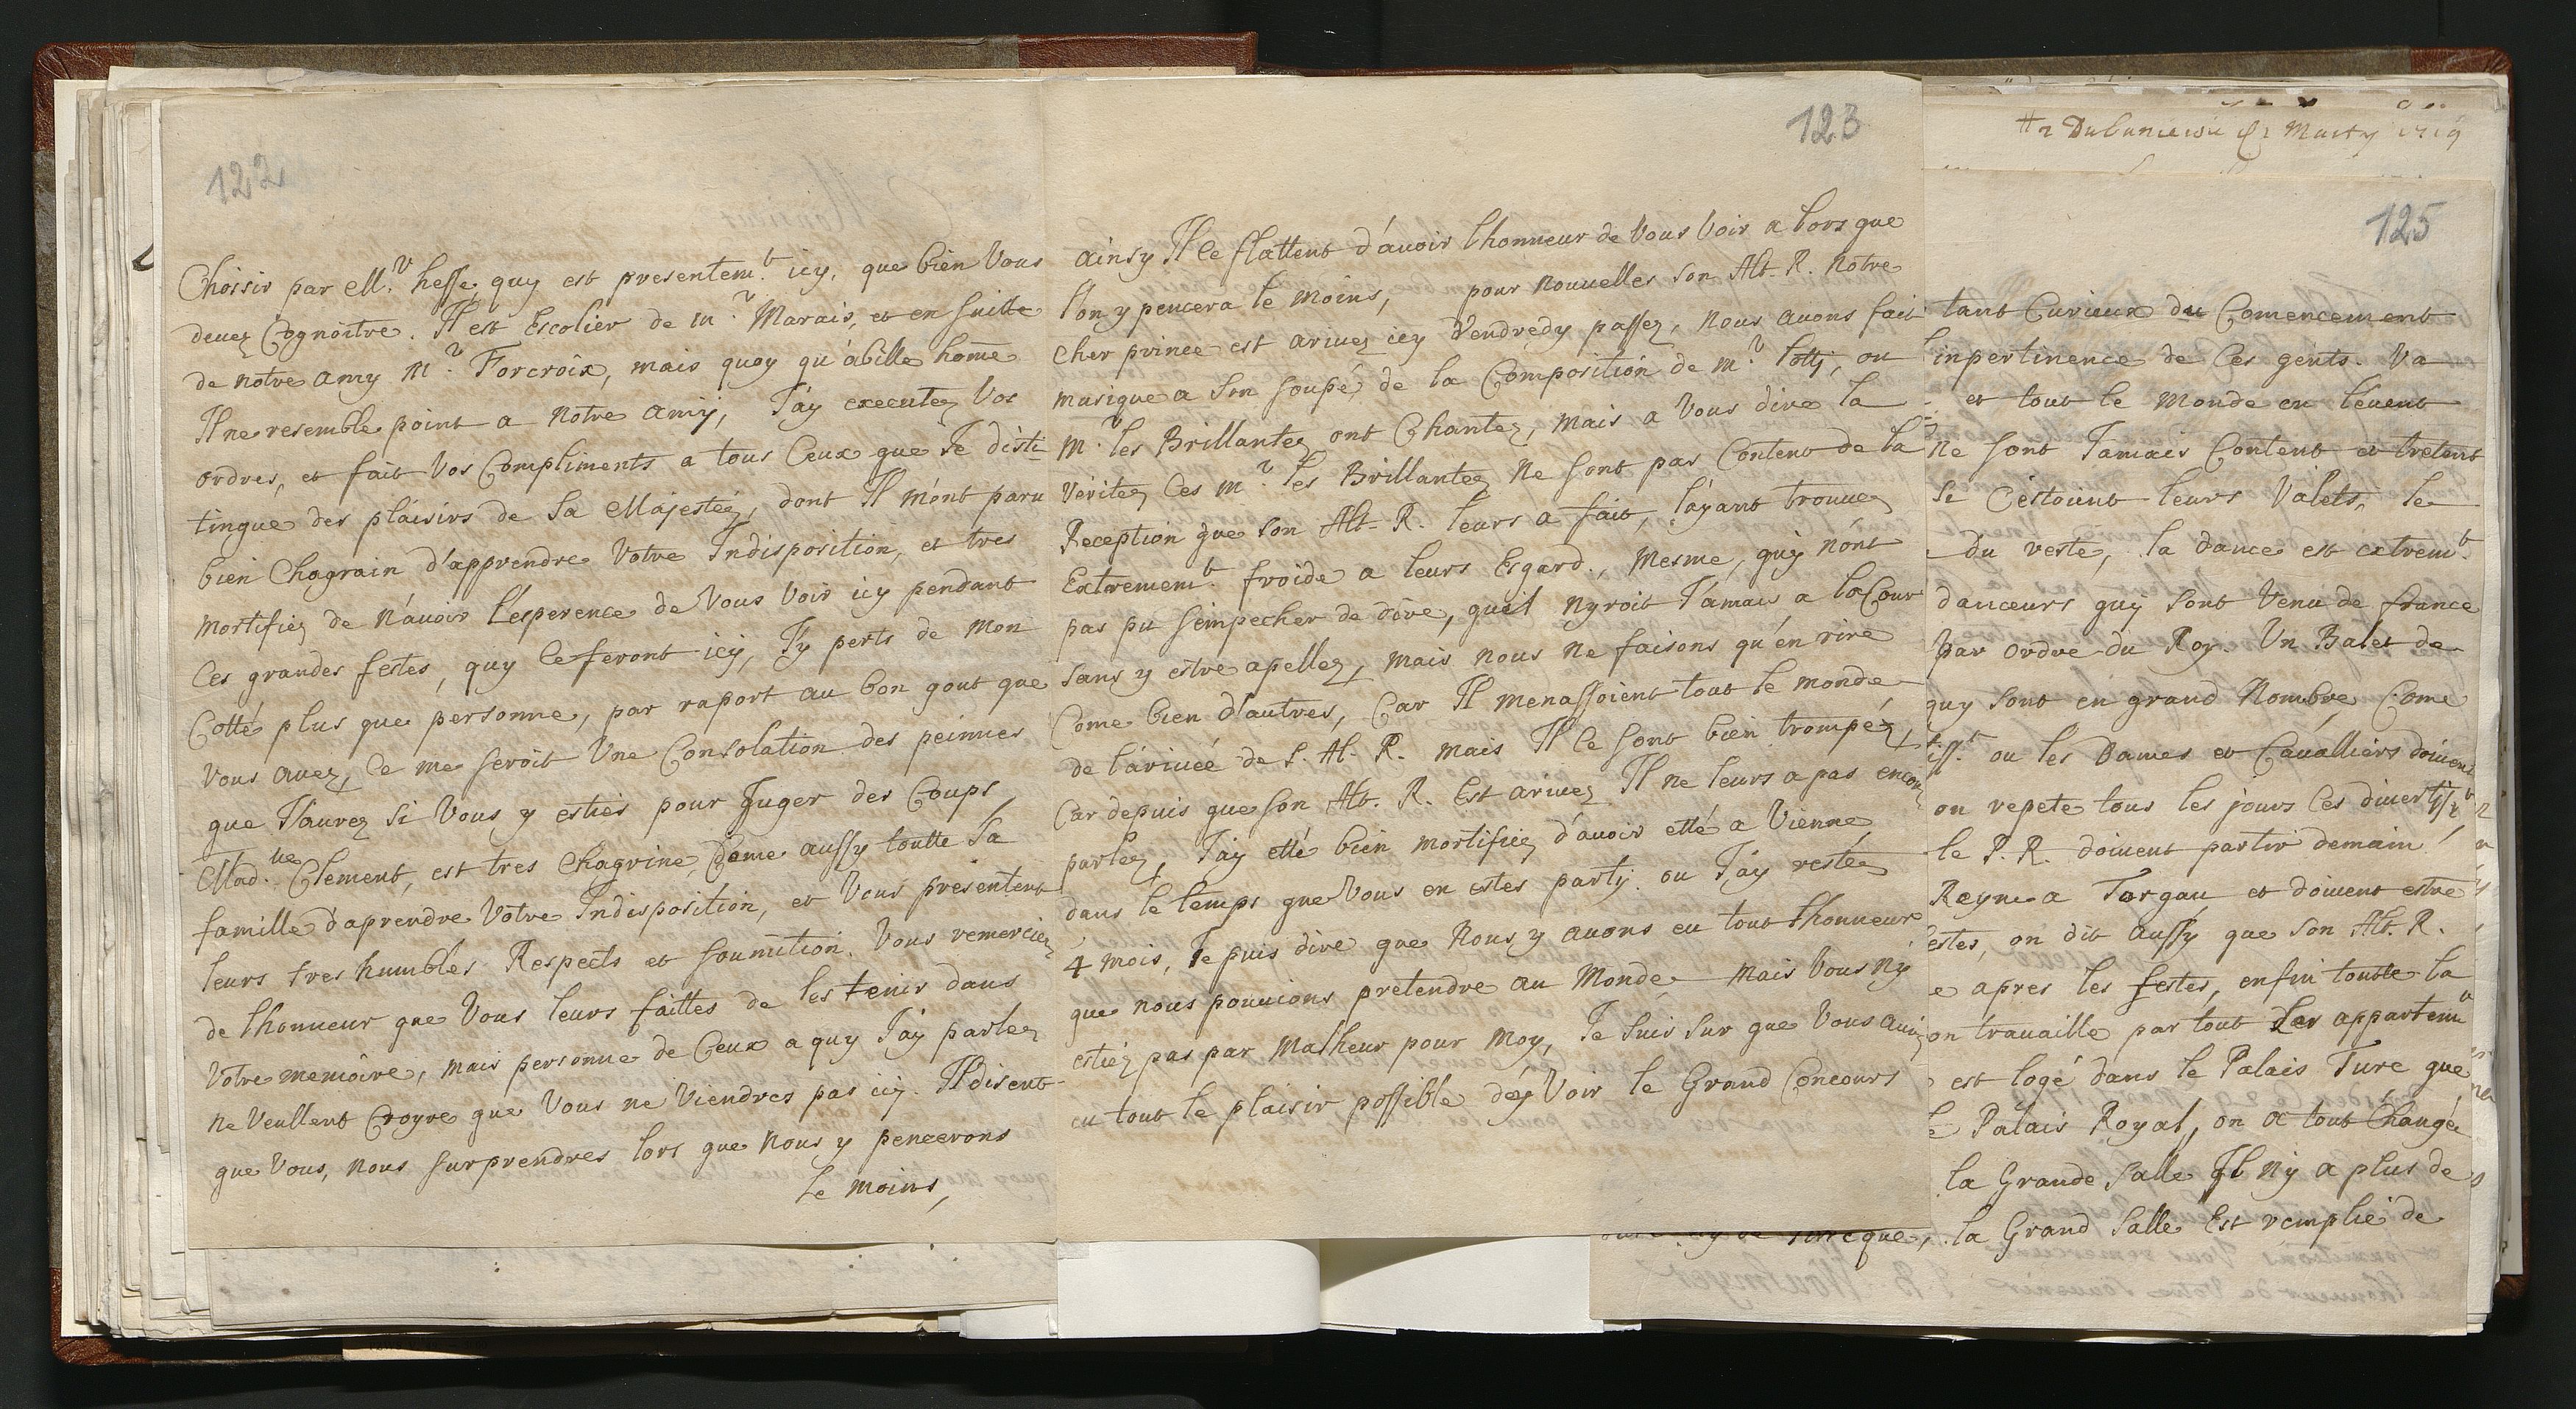 122
Choisir par M.r hesse quy est presentem.t icy, que bien Vous
devez Cognoitre. Il est Escolier de m.r Marais, et en suitte
de notre amy M.r Forcroix, mais quoy qu'abille home
Il ne resemble point a notre amy, J'ay executez Vos
ordres, et fait Vos Compliments a tous Ceux que Je disti-
tingue des plaisirs de Sa Majestéz, dont Il m'ont paru
bien Chagrain d'apprendre Votre Indisposition, et tres
mortifiez de n'avoir l'esperence de Vous Voir icy pendant
Ces grandes festes, quy Ce feront icy, J'y perts de mon
Cotté plus que personne, par raport au bon gout que
Vous avez, Ce me seroit Une Consolation des peinnes
que J'aurez Si Vous y estiés pour Juger des Coups,
Mad.lle Clement, est tres Chagrine, Come aussy toutte Sa
famille d'aprendre Votre Indisposition, et Vous presentent
leurs tres humbles Respects et soumition. Vous remerciez
de lhonneur que Vous leurs faittes de les tenir dans
Votre memoire, mais personne de Ceux a quy J'ay parlez
ne Veullent Croyre que Vous ne Viendres pas icy. Il disent
que Vous, nous surprendres lors que nous y pencerons
le moins,
123
ainsy Il Ce flattent d'avoir lhonneur de Vous Voir a lors que
l'on y pencera le moins, pour nouvelles Son Alt. R. Notre
Cher prince est arivez icy Vendredy passez, nous avons fait
musique a Son soupé, de la Composition de m.r lotty, ou
M.r les Brillantez ont Chantez, mais a Vous dire la
Véritez Ces m.r les Brillantez ne sont pas Contens de la
Reception que Son Alt. R. leurs a fait, l'ayant trouvez
Extremem.t froide a leurs Esgard., Mesme, quy n'ont
pas pu s'empecher de dire, queil nyroit Jamais a la Cour
Sans y estre apellez, mais nous ne faisons qu'en rire
Come bien d'autres, Car Il menassoient tout le monde
de l'arivée de S. Al. R. mais Il Ce sont bien trompéz,
Car depuis que Son Alt. R. Est arivez Il ne leurs a pas encor
parlez, J'ay etté bien mortifiez d'avoir etté a Vienne,
dans le temps que Vous en estes party. ou J'ay restéz
4 mois, Je puis dire que Nous y avons eu tout lhonneur
que nous pouvions pretendre au Monde mais Vous n'y
estiéz pas par Malheur pour moy, Je suis sur que Vous auriez
eu tout le plaisir possible d'ey Voir le Grand Concours
125
tant Curieux du Comencement
linpertinence de Ces gents. Va
et tout le Monde en levent
ne sont Jamais Content et tretent
Se C'estoint leurs Valets, le
Du reste, la dance est extrem.t
danceurs quy sont Venu de france
par ordre du Roy. Un Balet de
quy sont en grand Nombre, Come
ou les Dames et Cavalliers doivent
on repete tous les jours Ces
le P. R. doivent partir demain
Reyne a Torgau et doivent estre
estes, on dit aussy que Son Alt. R.
e apres les festes, enfin toutte la
on travaille par tout Les appartem.t
est logé dans le Palais Turc que
e Palais Royal, on a tout Changéz
la Grande Salle Il n'y a plus de
la Grand Salle Est remplie de